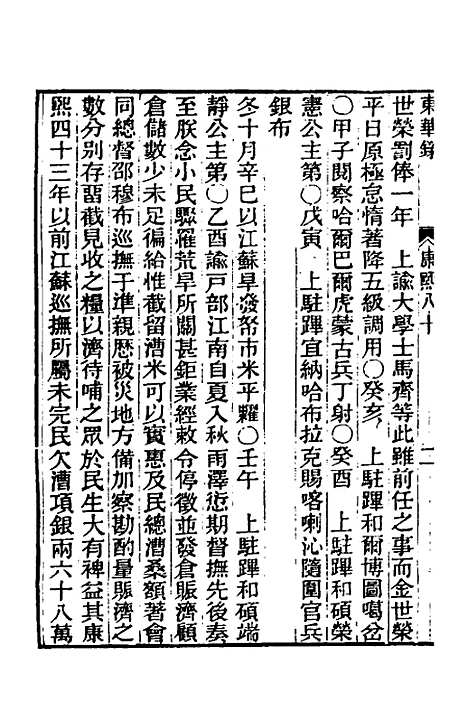 東華錄　康熙八十　二
世榮罰俸一年　上諭大學士馬齊等此雖前任之事而金世榮
平日原極怠惰著降五級調用○癸亥　上駐蹕和爾博圖噶岔
○甲子閱察哈爾巴爾虎蒙古兵丁射○癸酉　上駐蹕和碩榮
憲公主第○戊寅　上駐蹕宜納哈布拉克賜喀喇沁隨圍官兵
銀布
冬十月辛巳以江蘇旱發帑市米平糶○壬午　上駐蹕和碩端
靜公主第○乙酉諭戶部江南自夏入秋雨澤愆期督撫先後奏
至朕念小民驟罹荒旱所關甚鉅業經敕令停徵並發倉賑濟顧
倉儲數少未足徧給惟截留漕米可以實惠及民總漕桑額著會
同總督邵穆布巡撫于準親歷被災地方備加察勘酌量賑濟之
數分別存留截見收之糧以濟待哺之眾於民生大有裨益其康
熙四十三年以前江蘇巡撫所屬未完民欠漕項銀兩六十八萬